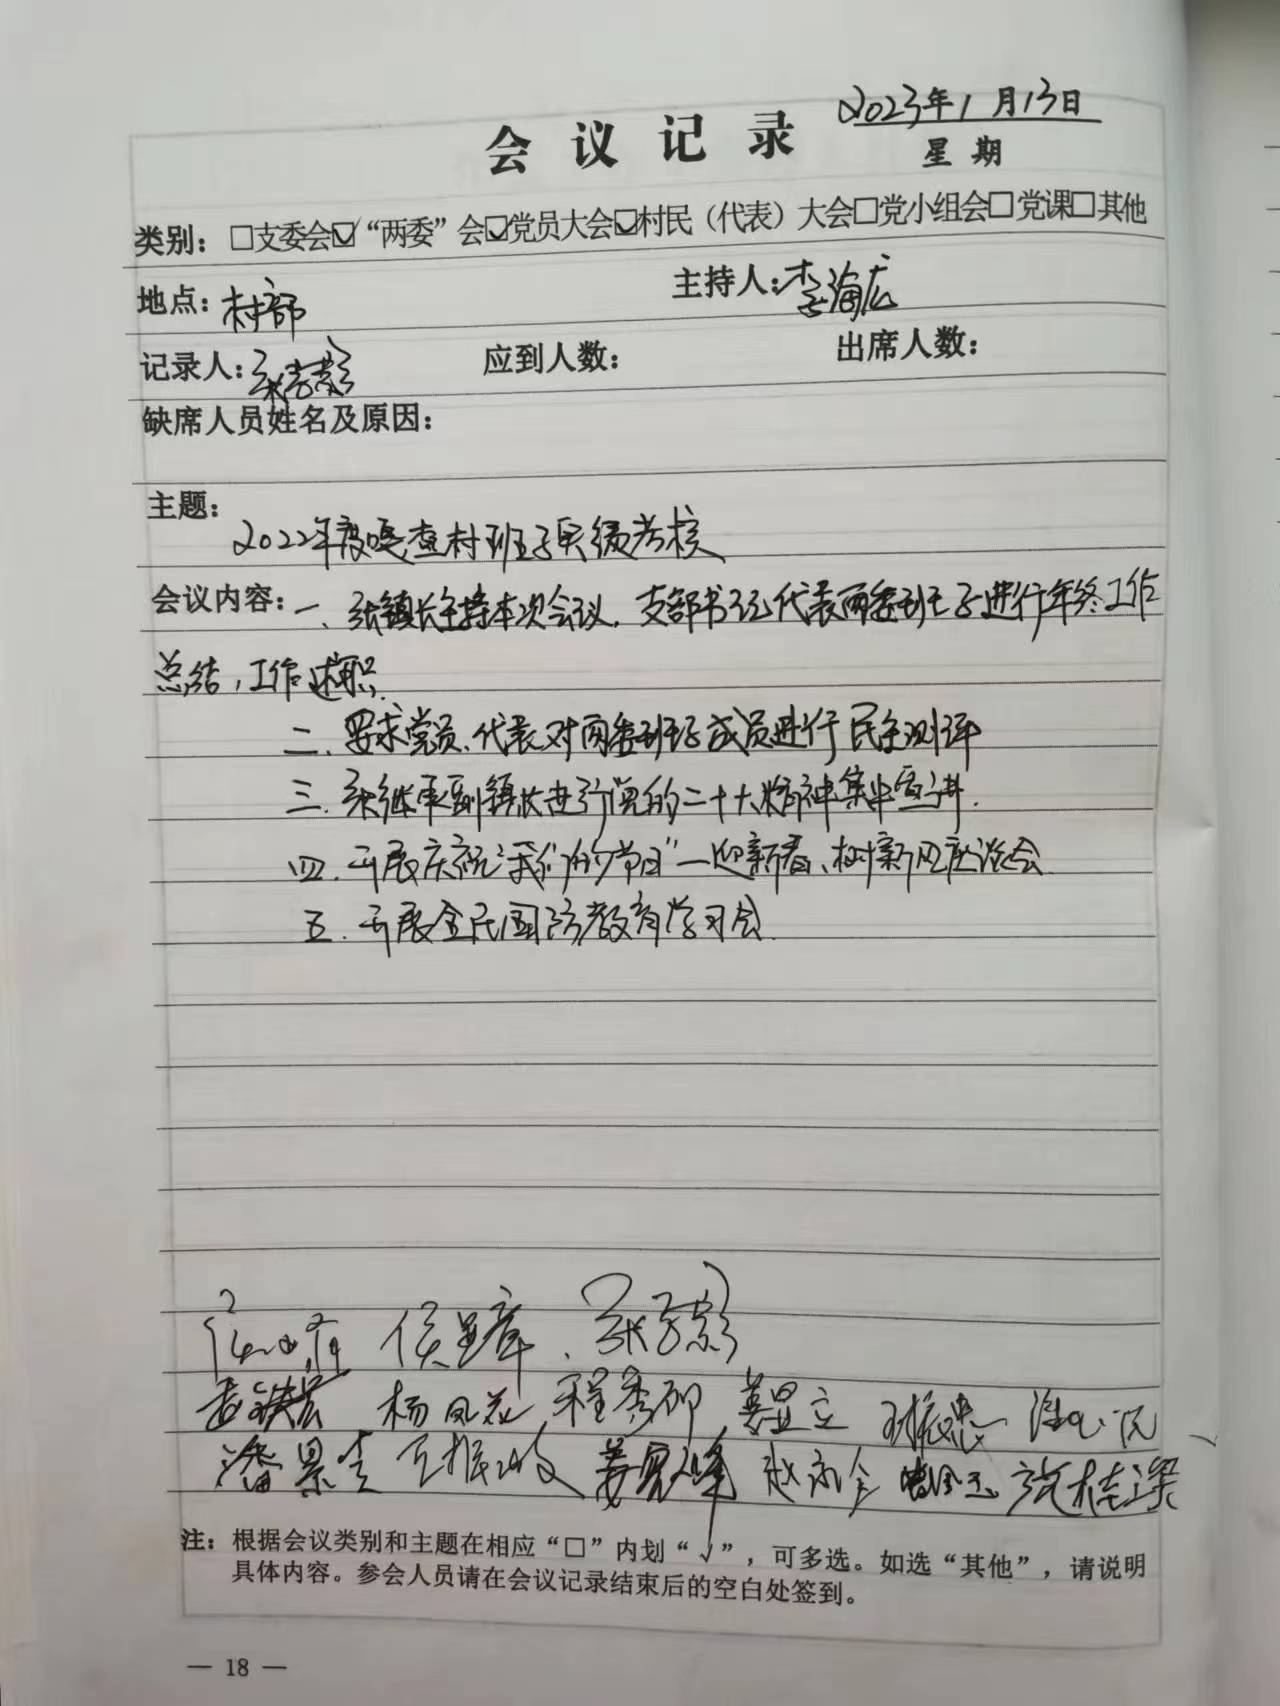 2023年1月13日
会议记录
星期
类别：□支委会☑“两委”会☑党员大会☑村民（代表）大会□党小组会□党课□其他
地点：村部 主持人：李海宏
记录人： 应到人数： 出席人数：
缺席人员姓名及原因：
主题：
2022年度嘎查村班子实绩考核
会议内容：一、张镇长主持本次会议，支部书记代表两委班子进行年终工作
总结，工作述职.
二、要求党员、代表对两委班子成员进行民主测评
三、张继承副镇长进行党的二十大精神集中宣讲.
四、开展庆祝“我们的节日”一迎新春、树新风座谈会.
五、开展全民国防教育学习会.
侯显章
杨凤花 程秀卯 姜显立 王振忠
潘景全 姜殿峰 赵永全
注：根据会议类别和主题在相应“□”内划“√”，可多选。如选“其他”，请说明
具体内容。参会人员请在会议记录结束后的空白处签到。
— 18 —